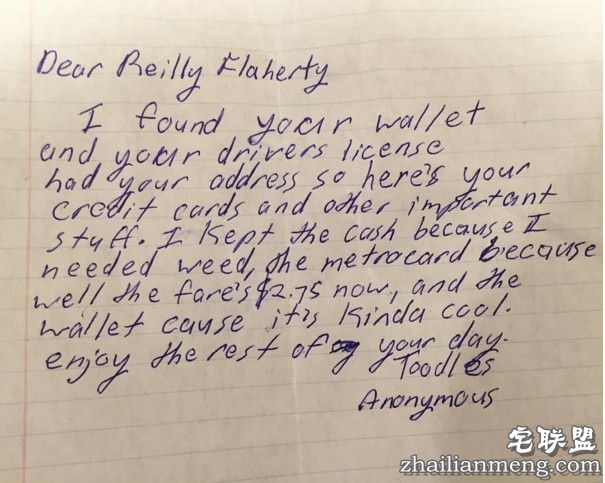 Dear Reilly Flaherty
I found your wallet
and your drivers license
had your address so here's your
credit cards and other important
stuff. I kept the cash because I
needed weed, the metrocard because
well the fare's $2.75 now, and the
wallet cause it's kinda cool.
enjoy the rest of your day.
Toodles
Anonymous
宅联盟
zhailianmeng.com